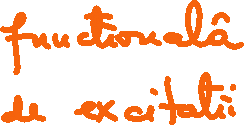 funcțională
de excitatii